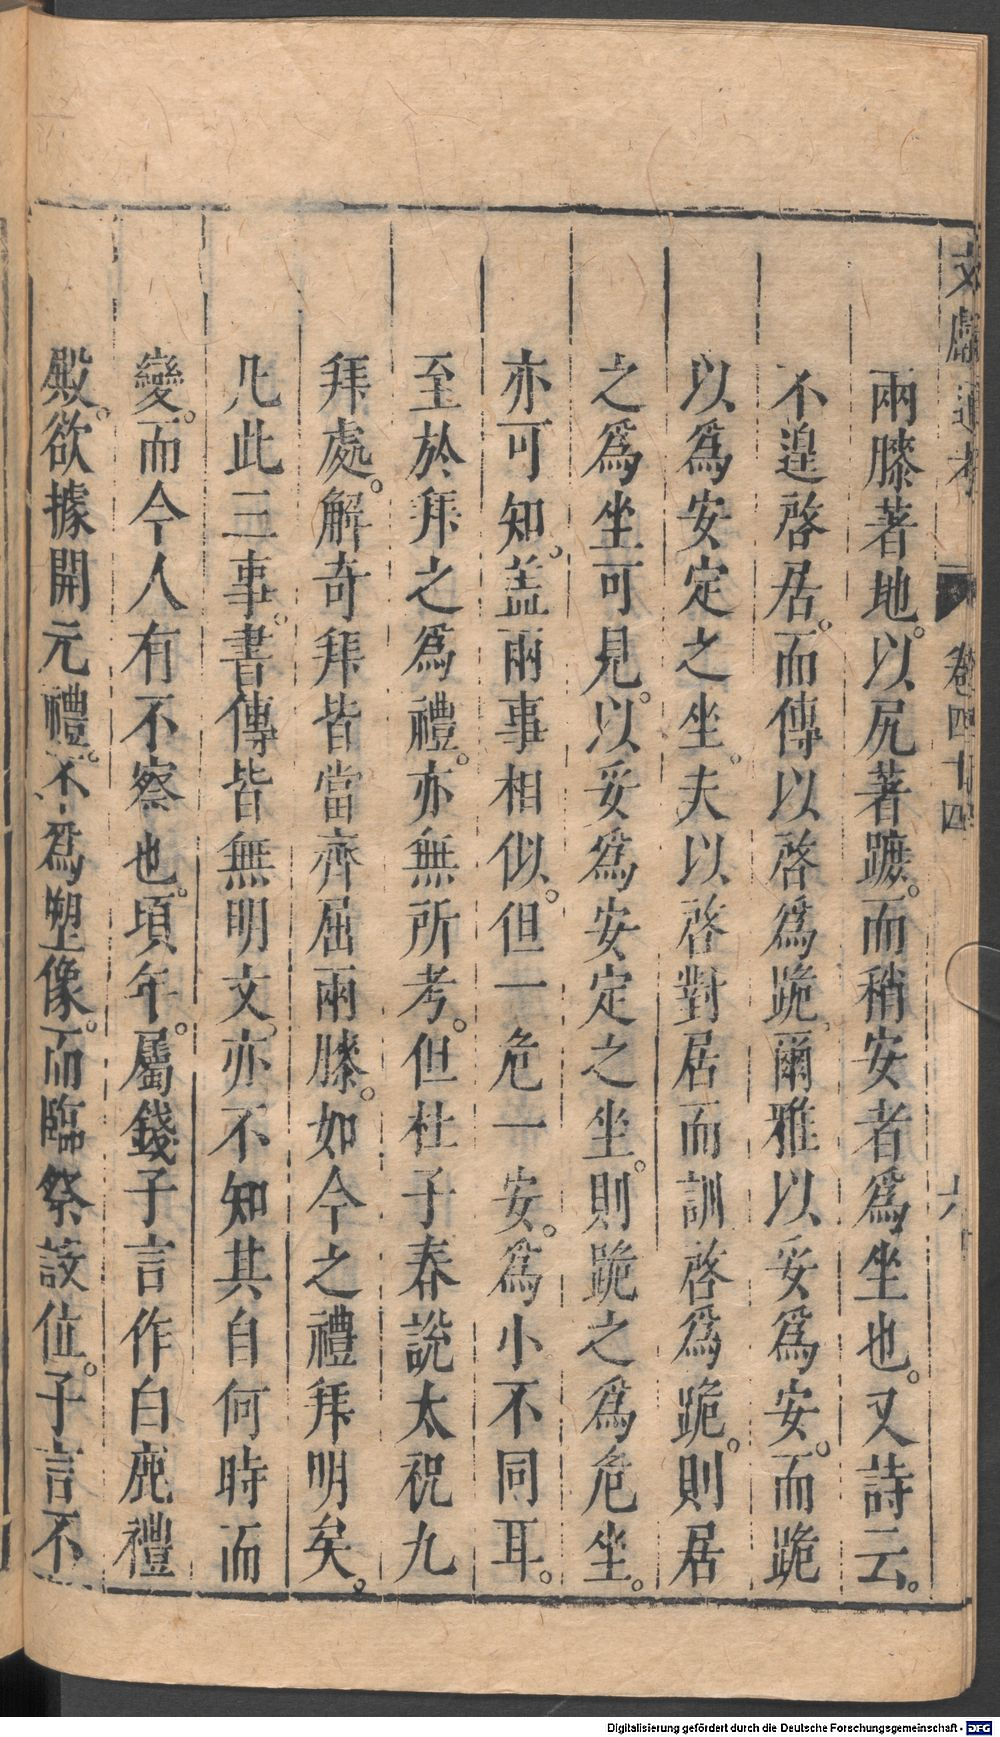 文獻通考 卷四十四 六
兩膝著地。以尻著蹠。而稍安者爲坐也。又詩云。
不遑啓居。而傳以啓爲跪。爾雅以妥爲安。而跪
以爲安定之坐。夫以啓對居而訓啓爲跪。則居
之爲坐可見。以妥爲安定之坐。則跪之爲危坐。
亦可知。盖兩事相似。但一危一安。爲小不同耳。
至於拜之爲禮。亦無所考。但杜子春說太祝九
拜處。解奇拜皆當齊屈兩膝。如今之禮拜明矣。
凡此三事。書傳皆無明文。亦不知其自何時而
變。而今人有不察也。頃年。屬錢子言作白鹿禮
殿。欲據開元禮。不爲塑像。而臨祭設位。子言不
Digitalisierung gefördert durch die Deutsche Forschungsgemeinschaft - DFG